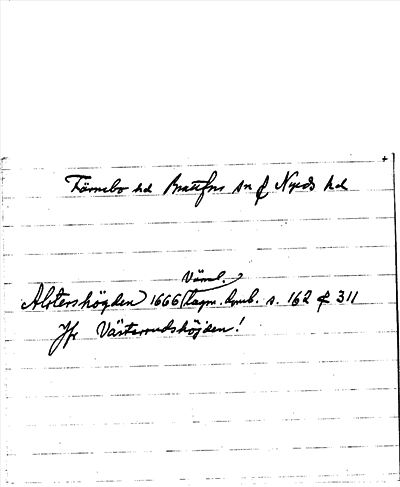 +
Färnebo hd Brattfors sn & Nyeds hd
Värml.
Alstershöjden 1666 lagm. domb. s. 162 & 311
Jfr Västerrudshöjden!